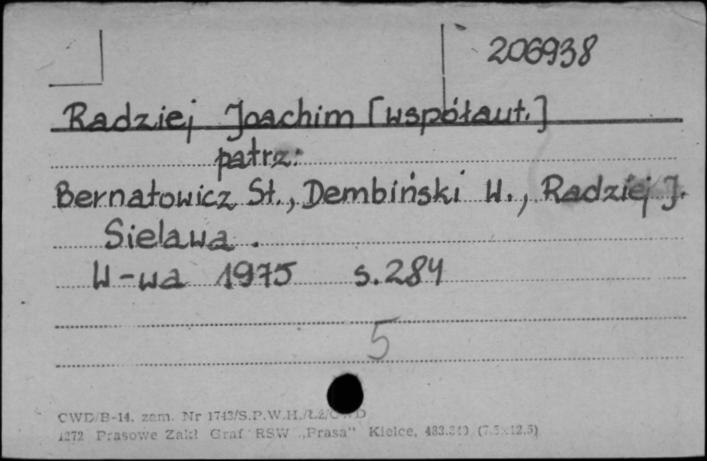 206938
Radziej Joachim [współaut.]
patrz:
Bernatowicz St., Dembiński W., Radziej J.
Sielawa.
W-wa 1975 s.284
5
CWD/B-14. zam. Nr 1743/S.P.W.H./Łż/CWD
1272 Prasowe Zakł Graf RSW „Prasa" Kielce, (7.5x12.5)